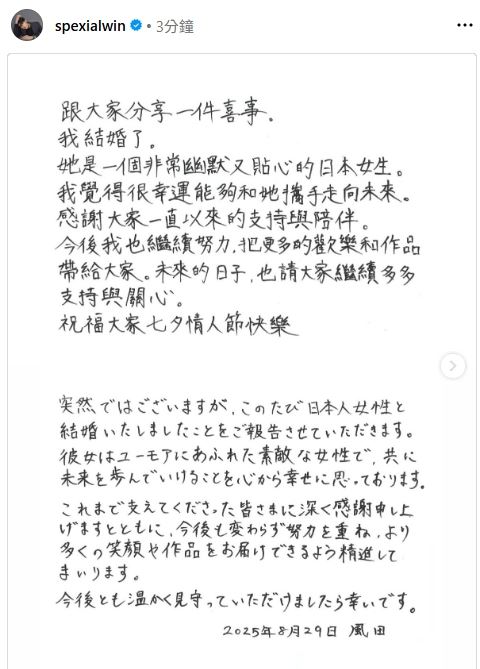 spexialwin • 3分鐘
跟大家分享一件喜事.
我結婚了.
她是一個非常幽默又貼心的日本女生。
我覺得很幸運能夠和她攜手走向未來.
感謝大家一直以來的支持與陪伴。
今後我也繼續努力,把更多的歡樂和作品
帶給大家。未來的日子,也請大家繼續多多
支持與關心。
祝福大家七夕情人節快樂
突然ではございますが,このたび日本人女性と
結婚いたしましたことをご報告させていただきます。
彼女はユーモアにあふれた素敵な女性で,共に
未来を歩んでいけることを心から幸せに思っております.
これまで支えてくださった皆さまに深く感謝申し上
げますとともに,今後も変わらず努力を重ね,より
多くの笑顔や作品をお届けできるよう精進して
まいります。
今後とも温かく見守っていただけましたら幸いです。
2025年8月29日 風田